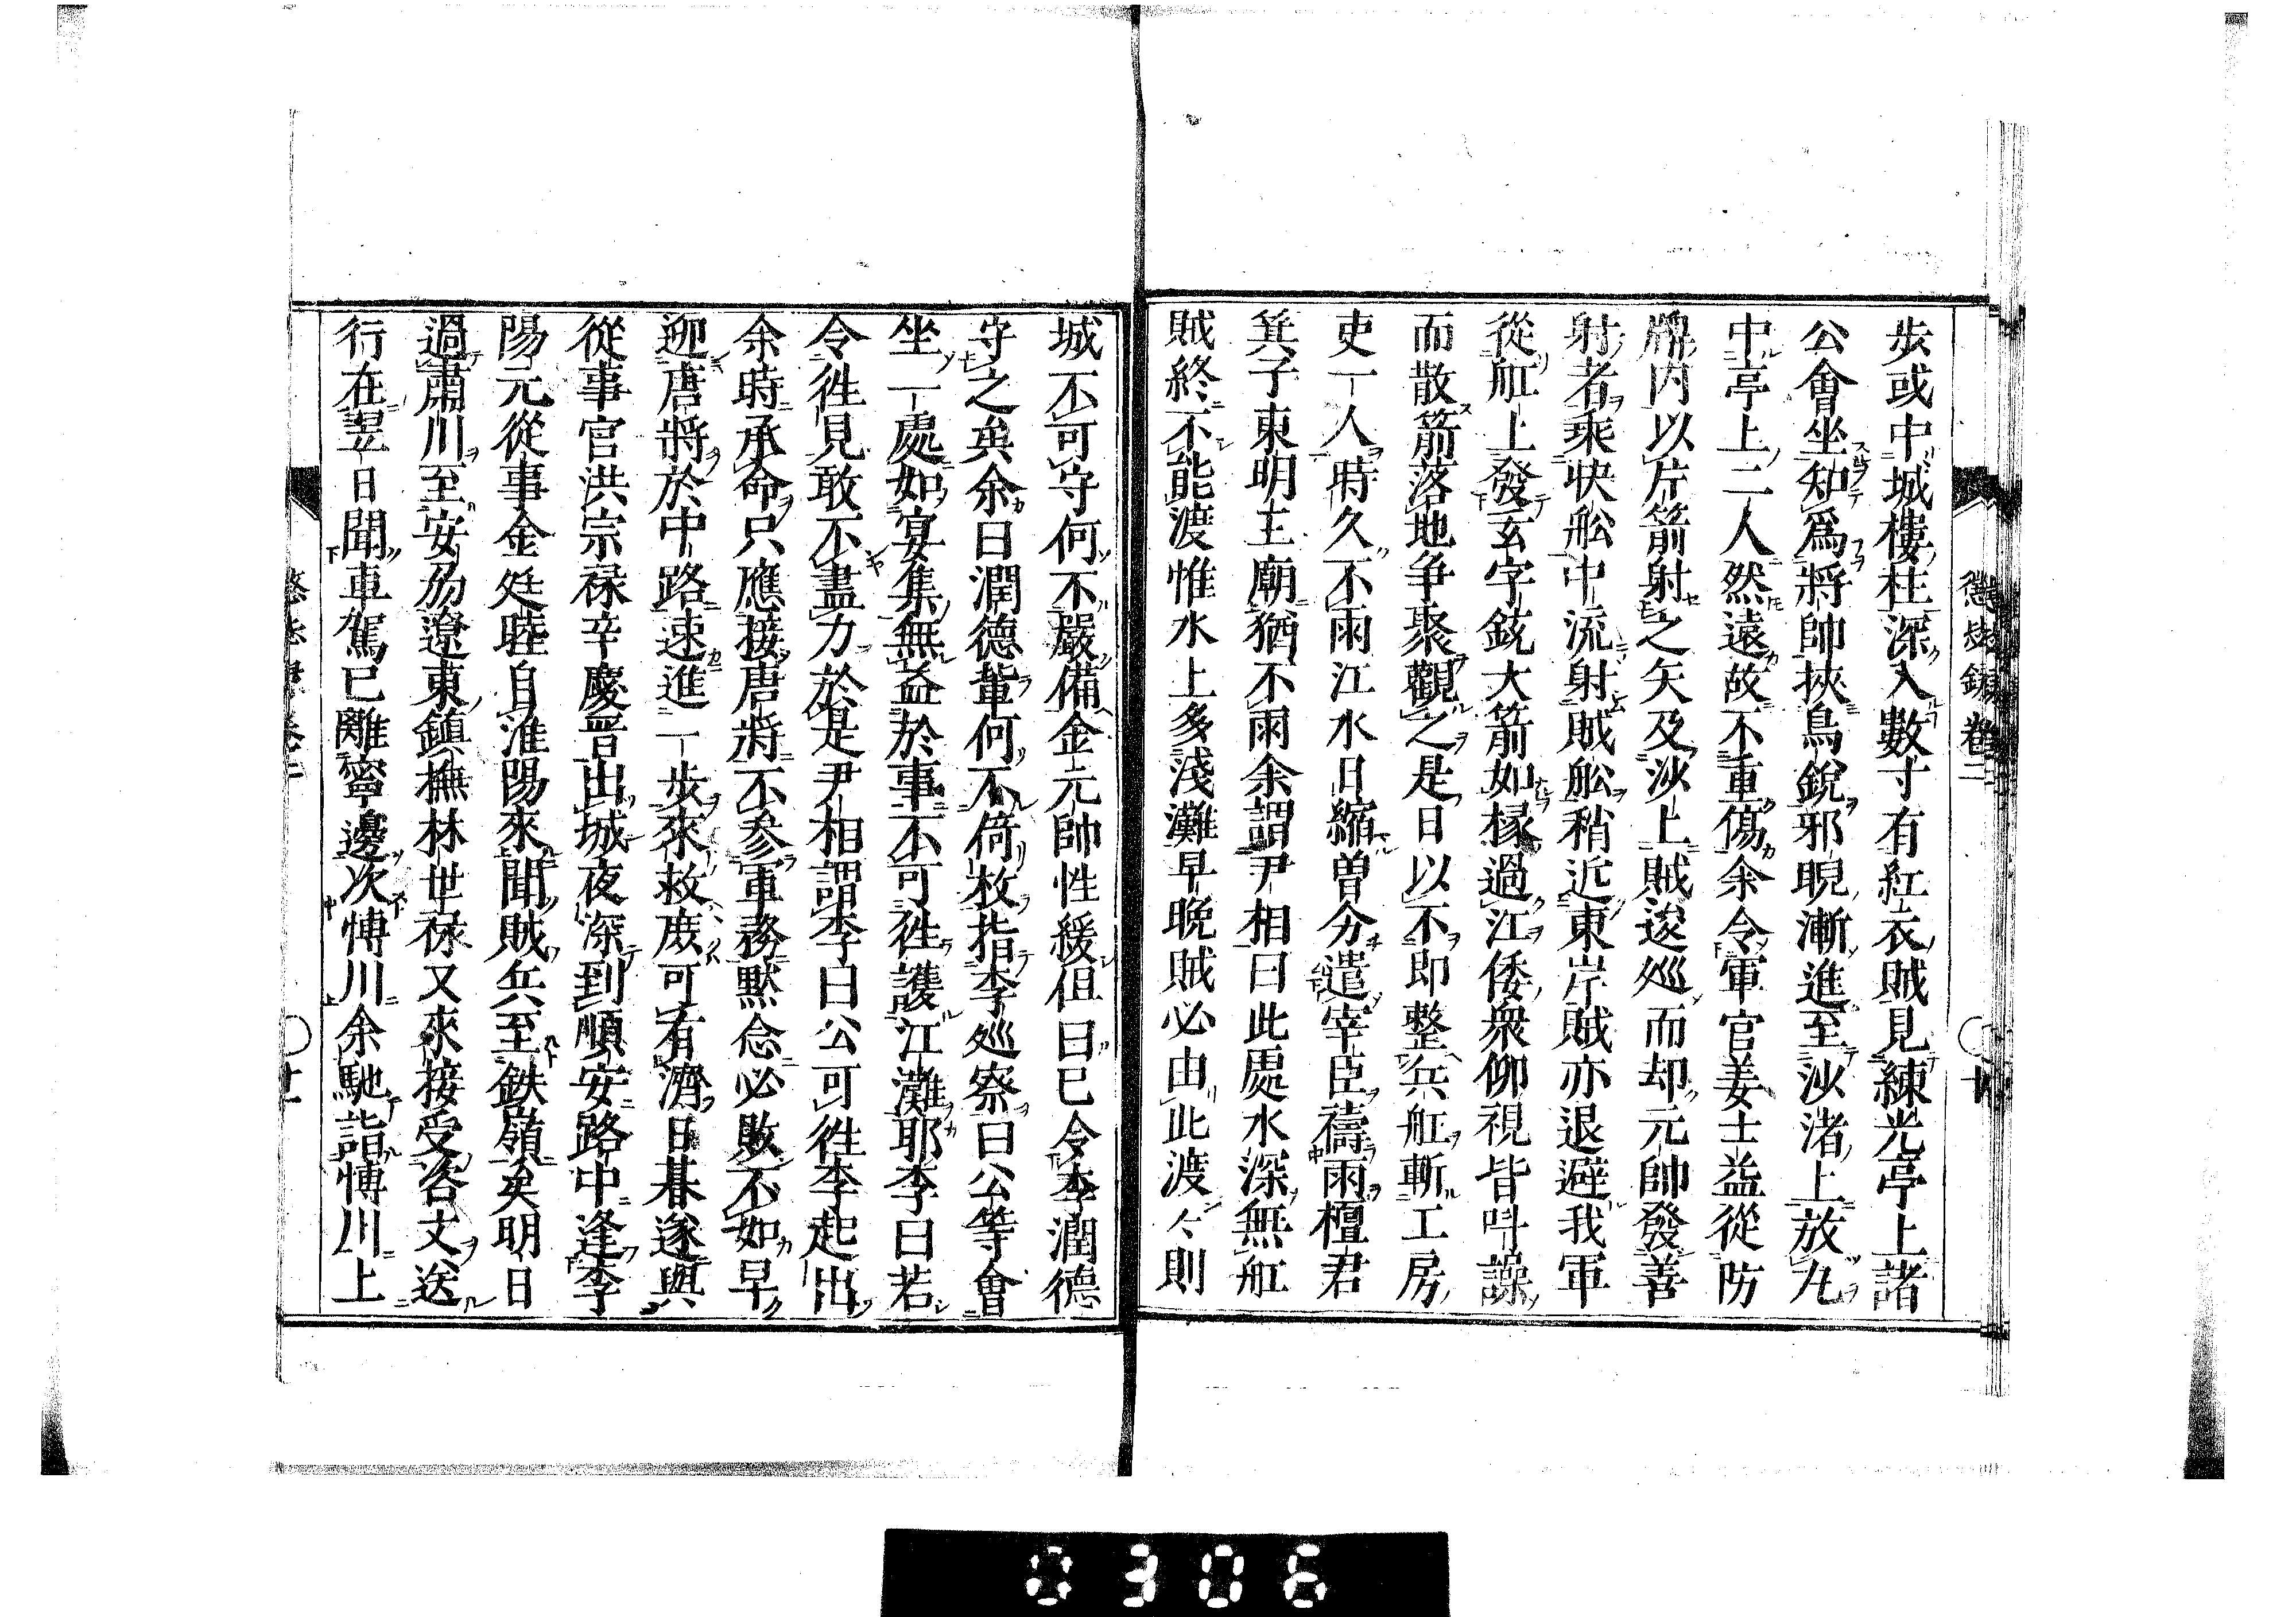 懲毖録 卷二 〇十
步或中城樓柱深入數寸有紅衣賊見練光亭上諸
公會坐知爲將帥挾鳥銃邪睨漸進至沙渚上放丸
中亭上二人然遠故不重傷余令軍官姜士益從防
牌内以片箭射之矢及沙上賊逡巡而却元帥發善
射者乘快舩中流射賊舩稍近東岸賊亦退避我軍
從舡上發玄字銃大箭如椽過江倭衆仰視皆呌譟
而散箭落地争聚觀之是日以不即整兵舡斬工房
吏一人時久不雨江水日縮曽分遣宰臣禱雨檀君
箕子東明王廟猶不雨余謂尹相曰此處水深無舡
賊終不能渡惟水上多淺灘早晩賊必由此渡々則
城不可守何不嚴備金元帥性緩但曰已令李潤德
守之矣余曰潤德輩何不倚杖指李巡察曰公等會
坐一處如宴集無益於事不可徃護江灘耶李曰若
令徃見敢不盡力於是尹相謂李曰公可徃李起出
余時承命只應接唐將不参軍務黙念必敗不如早
迎唐將於中路速進一步來救庶可有濟日暮遂與
從事官洪宗禄辛慶晋出城夜深到順安路中逢李
陽元從事金廷睦自淮陽來聞賊兵至鉄嶺矣明日
過肅川至安州遼東鎮撫林世禄又來接受咨文送
行在翌日聞車駕已離寧邊次博川余馳詣博川上
0306